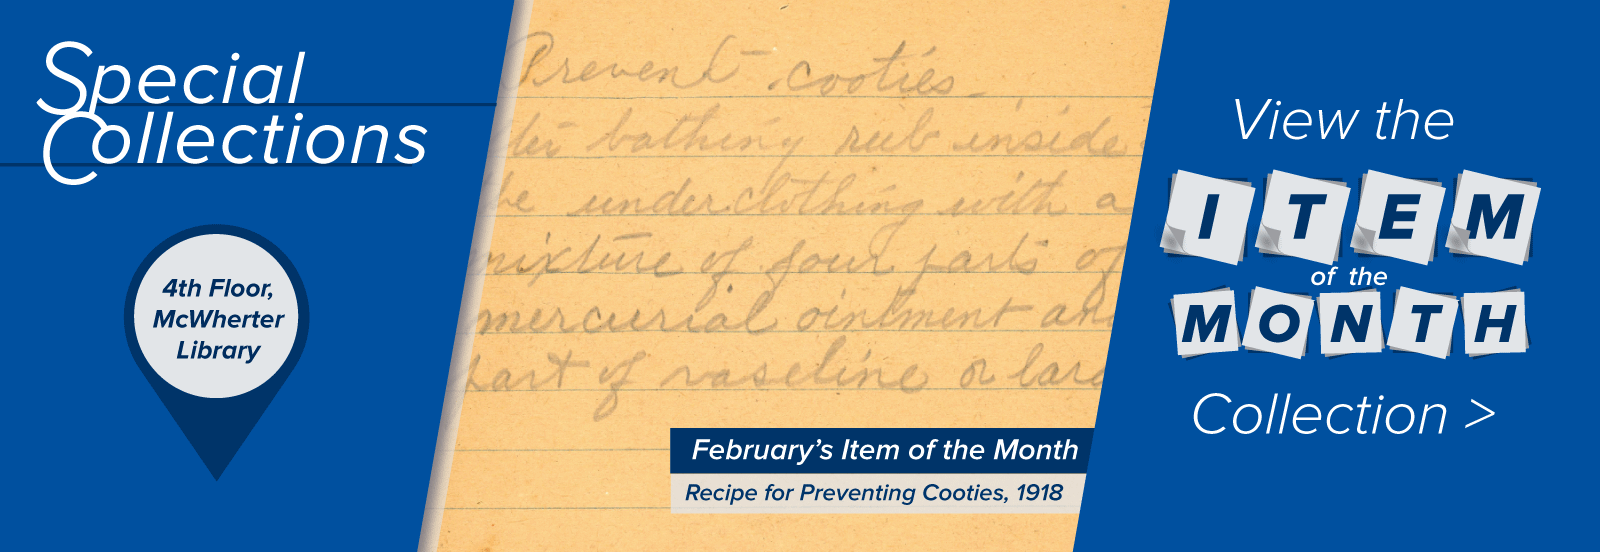 Special
Collections
4th Floor,
McWherter
Library
Prevent cooties
bathing rub inside
underclothing with a
mixture of four parts of
mercurial ointment and
part of vaseline or
February's Item of the Month
Recipe for Preventing Cooties, 1918
View the
ITEM
of the
MONTH
Collection >